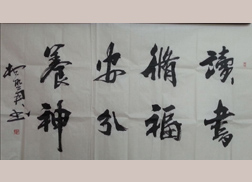 讀書
脩福
安分
養神